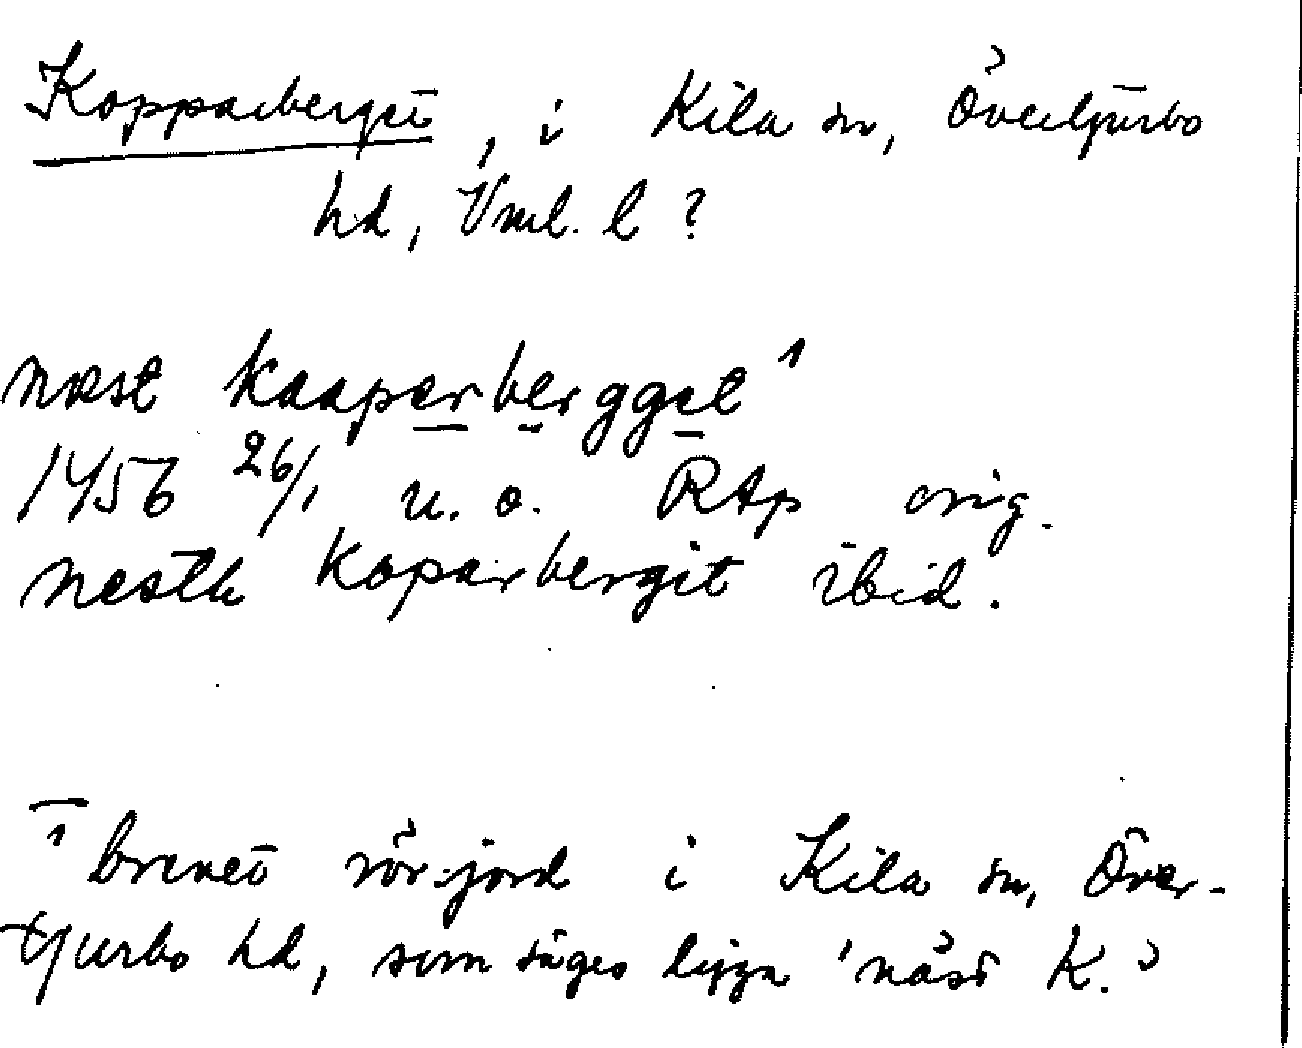 Kopparberget, i Kila sn, Övertjurbo
hd, Vml. l ?
næst kaaperbergget ¹
1456 26/1 u. o. RAp orig.
nesth koparbergit ibid.
¹ brevet rör jord i Kila sn, Över-
tjurbo hd, som säges ligga 'näst K.'